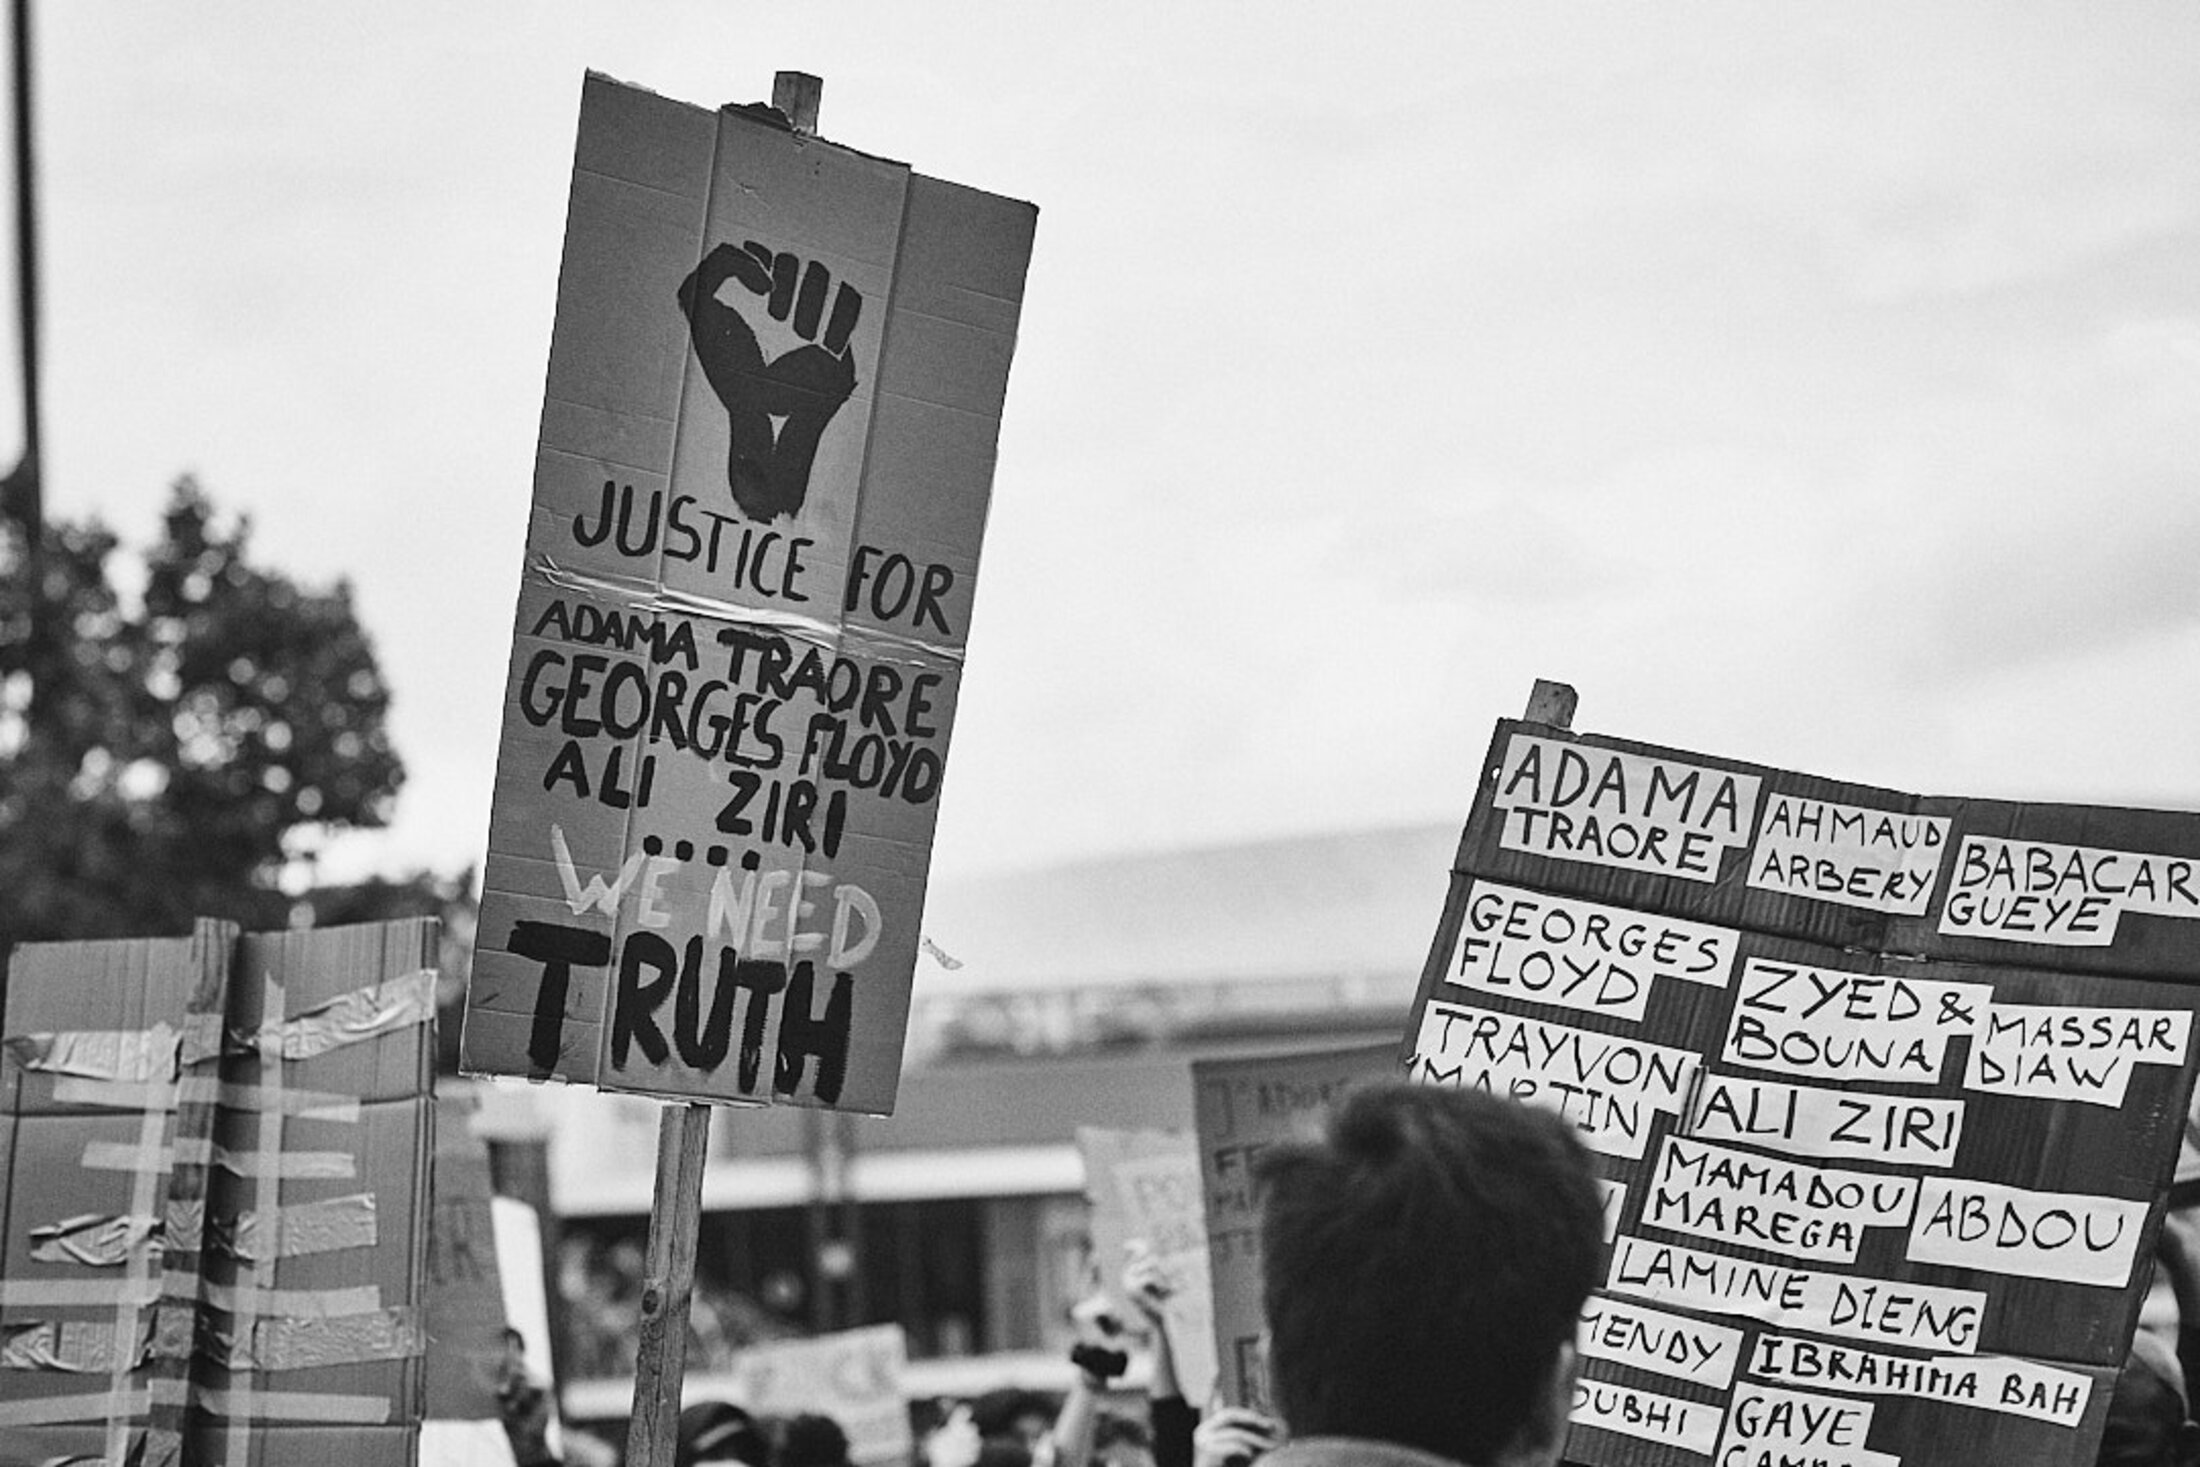 JUSTICE FOR
ADAMA TRAORE
GEORGES FLOYD
ALI ZIRI
....
WE NEED
TRUTH
ADAMA
TRAORE
AHMAUD
ARBERY
BABACAR
GUEYE
GEORGES
FLOYD
ZYED &
BOUNA
MASSAR
DIAW
TRAYVON
MARTIN
ALI ZIRI
MAMADOU
MAREGA
ABDOU
LAMINE DIENG
MENDY
IBRAHIMA BAH
OUBHI
GAYE